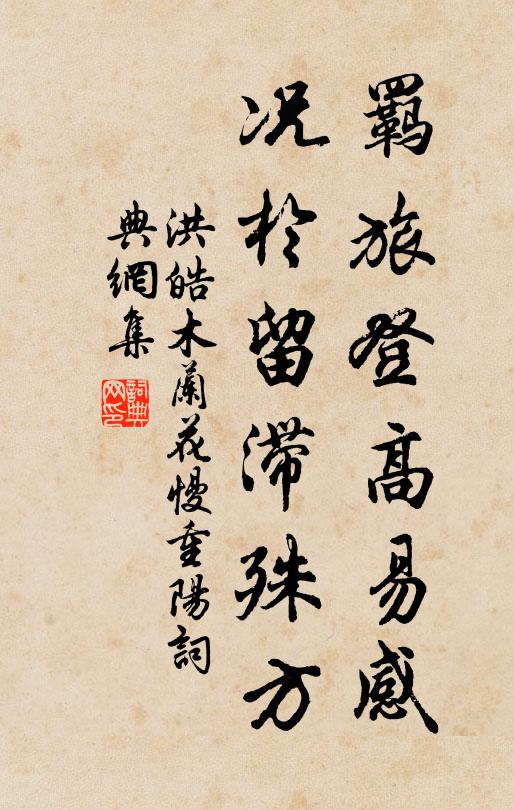 羈旅登高易感
况於留滯殊方
洪皓木蘭花慢重陽詞
典網集
詞典
网印